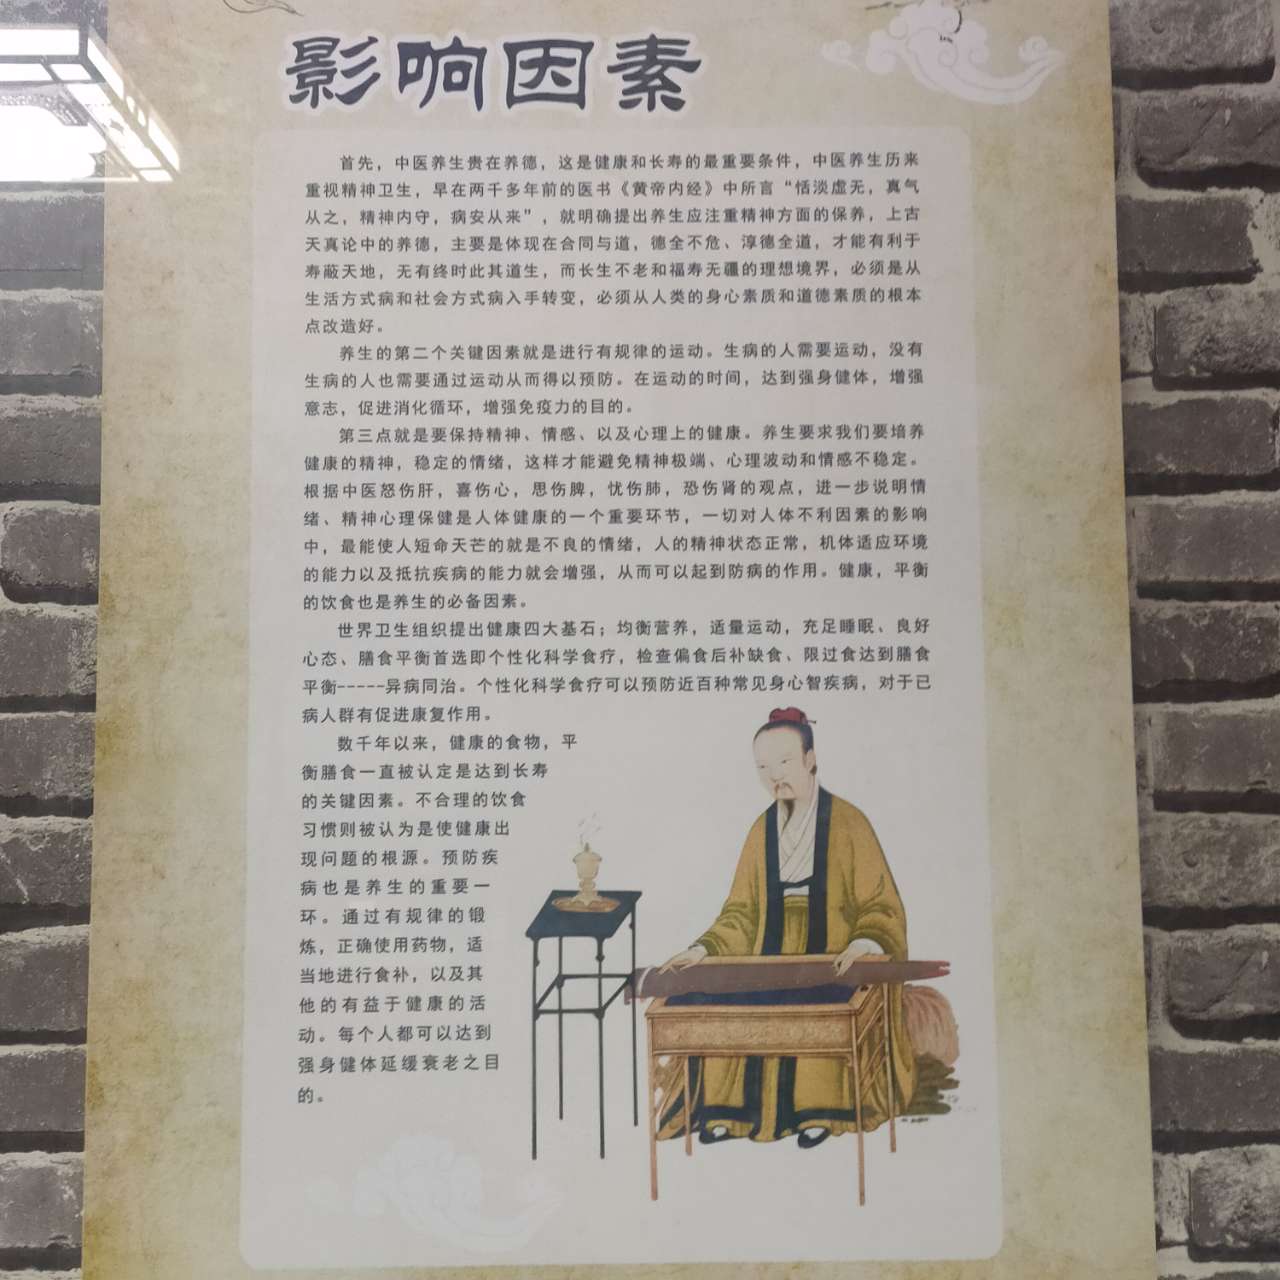 影响因素
首先，中医养生贵在养德，这是健康和长寿的最重要条件，中医养生历来
重视精神卫生，早在两千多年前的医书《黄帝内经》中所言“恬淡虚无，真气
从之，精神内守，病安从来”，就明确提出养生应注重精神方面的保养，上古
天真论中的养德，主要是体现在合同与道，德全不危、淳德全道，才能有利于
寿蔽天地，无有终时此其道生，而长生不老和福寿无疆的理想境界，必须是从
生活方式病和社会方式病入手转变，必须从人类的身心素质和道德素质的根本
点改造好。
养生的第二个关键因素就是进行有规律的运动。生病的人需要运动，没有
生病的人也需要通过运动从而得以预防。在运动的时间，达到强身健体，增强
意志，促进消化循环，增强免疫力的目的。
第三点就是要保持精神、情感、以及心理上的健康。养生要求我们要培养
健康的精神，稳定的情绪，这样才能避免精神极端、心理波动和情感不稳定。
根据中医怒伤肝，喜伤心，思伤脾，忧伤肺，恐伤肾的观点，进一步说明情
绪、精神心理保健是人体健康的一个重要环节，一切对人体不利因素的影响
中，最能使人短命天芒的就是不良的情绪，人的精神状态正常，机体适应环境
的能力以及抵抗疾病的能力就会增强，从而可以起到防病的作用。健康，平衡
的饮食也是养生的必备因素。
世界卫生组织提出健康四大基石；均衡营养，适量运动，充足睡眠、良好
心态、膳食平衡首选即个性化科学食疗，检查偏食后补缺食、限过食达到膳食
平衡-----异病同治。个性化科学食疗可以预防近百种常见身心智疾病，对于已
病人群有促进康复作用。
数千年以来，健康的食物，平
衡膳食一直被认定是达到长寿
的关键因素。不合理的饮食
习惯则被认为是使健康出
现问题的根源。预防疾
病也是养生的重要一
环。通过有规律的锻
炼，正确使用药物，适
当地进行食补，以及其
他的有益于健康的活
动。每个人都可以达到
强身健体延缓衰老之目
的。